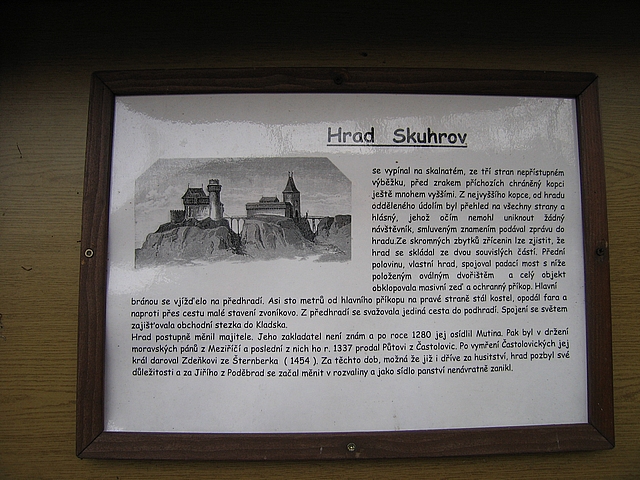 Hrad Skuhrov
se vypínal na skalnatém, ze tří stran nepřístupném
výběžku, před zrakem příchozích chráněný kopci
ještě mnohem vyššími. Z nejvyššího kopce, od hradu
odděleného údolím byl přehled na všechny strany a
hlásný, jehož očím nemohl uniknout žádný
návštěvník, smluveným znamením podával zprávu do
hradu.Ze skromných zbytků zřícenin lze zjistit, že
hrad se skládal ze dvou souvislých částí. Přední
polovinu, vlastní hrad, spojoval padací most s níže
položeným oválným dvořištěm a celý objekt
obklopovala masivní zeď a ochranný příkop. Hlavní
bránou se vjížďelo na předhradí. Asi sto metrů od hlavního příkopu na pravé straně stál kostel, opodál fara a
naproti přes cestu malé stavení zvoníkovo. Z předhradí se svažovala jediná cesta do podhradí. Spojení se světem
zajišťovala obchodní stezka do Kladska.
Hrad postupně měnil majitele. Jeho zakladatel není znám a po roce 1280 jej osídlil Mutina. Pak byl v držení
moravských pánů z Meziříčí a poslední z nich ho r. 1337 prodal Půtovi z Častolovic. Po vymření Častolovických jej
král daroval Zdeňkovi ze Šternberka ( 1454 ). Za těchto dob, možná že již i dříve za husitství, hrad pozbyl své
důležitosti a za Jiřího z Poděbrad se začal měnit v rozvaliny a jako sídlo panství nenávratně zanikl.